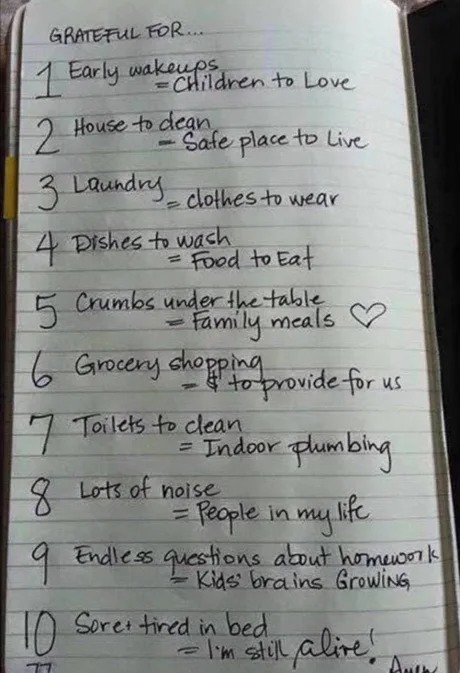 GRATEFUL FOR...
1 Early wakeups
= Children to Love
2 House to clean
= Safe place to Live
3 Laundry
= clothes to wear
4 Dishes to wash
= Food to Eat
5 Crumbs under the table
= Family meals ♡
6 Grocery shopping
= $ to provide for us
7 Toilets to clean
= Indoor plumbing
8 Lots of noise
= People in my life
9 Endless questions about homework
= Kids' brains GROWING
10 Sore + tired in bed
= I'm still alive!